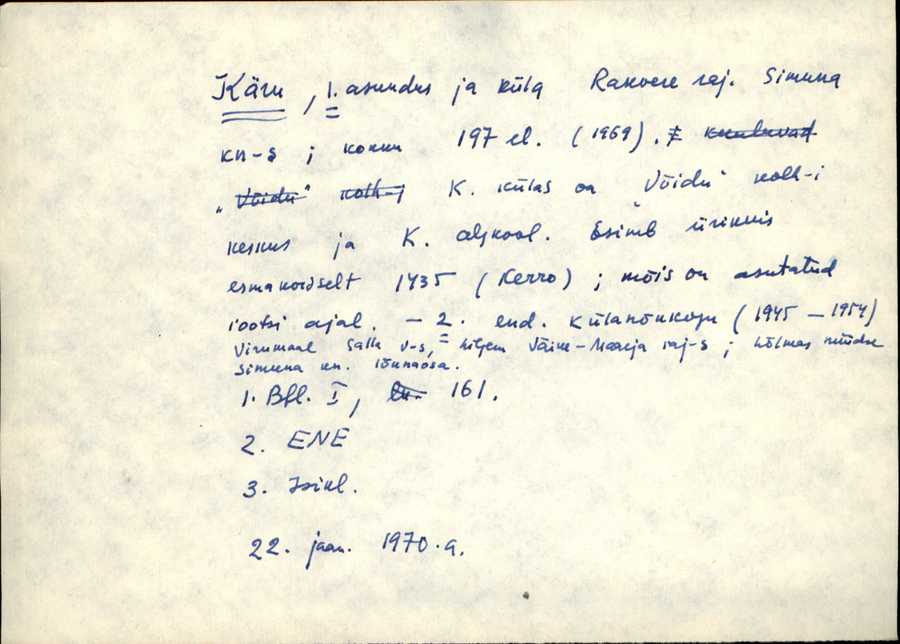 Käru, 1. asundus ja küla Rakvere raj. Simuna
kn-s ; kokku 197 el. (1969). E kuuluvad
„Võidu" kolh-i K. külas on „Võidu" kolh-i
keskus ja K. algkool. Esineb ürikuis
esmakordselt 1435 (Kerro) ; mõis on asutatud
rootsi ajal. — 2. end. külanõukogu (1945 — 1954)
Virumaal Salla v-s, hiljem Väike-Maarja raj-s ; hõlmas nüüdse
Simuna kn. lõunaosa.
1. Bfl. I, lk. 161.
2. ENE
3. Isikl.
22. jaan. 1970. a.